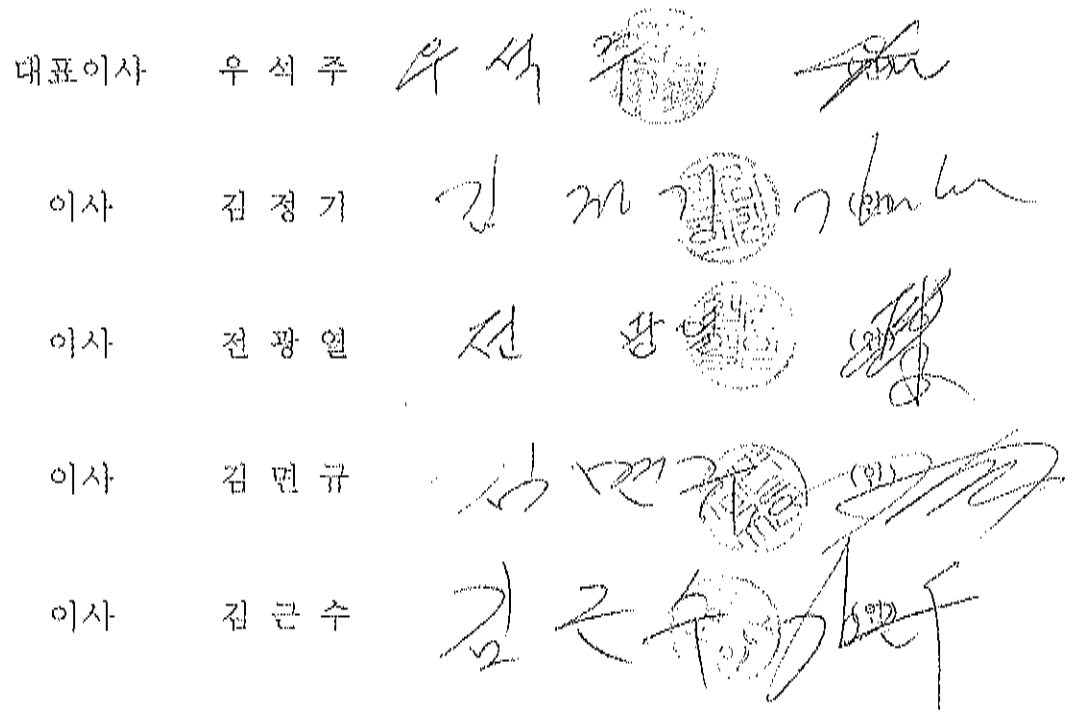 대표이사 우 석 주 우 석 주 (인)
이사 김 정 기 김 정 기 (인)
이사 전 광 열 전 광 열 (인)
이사 김 면 규 김 면 규 (인)
이사 김 근 수 김 근 수 (인)